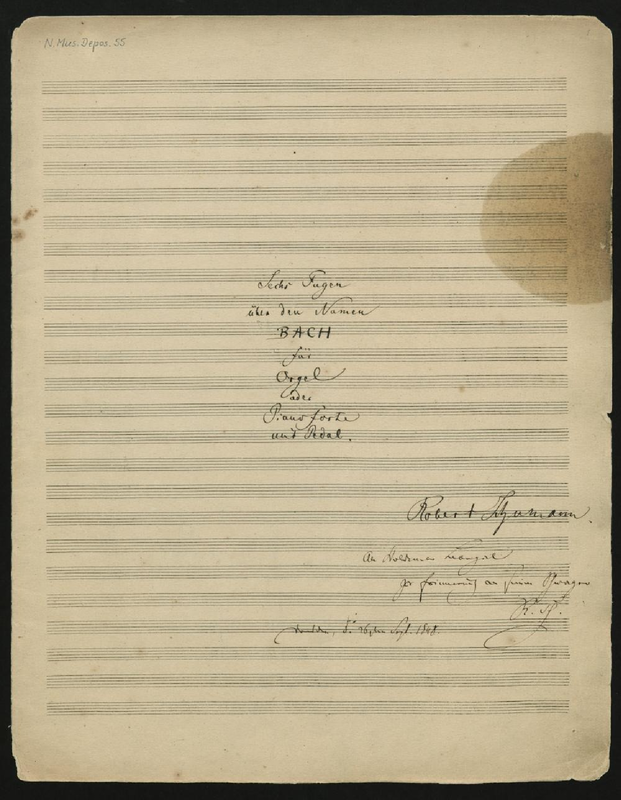 N. Mus. Depos. 55
1
Sechs Fugen
über den Namen
BACH
für
Orgel
oder
Pianoforte
und Pedal.
Robert Schumann.
An Woldemar Bargiel
zur Erinnerung an seinen Schwager
R. Sch.
Dresden, d. 26sten Sept. 1848.